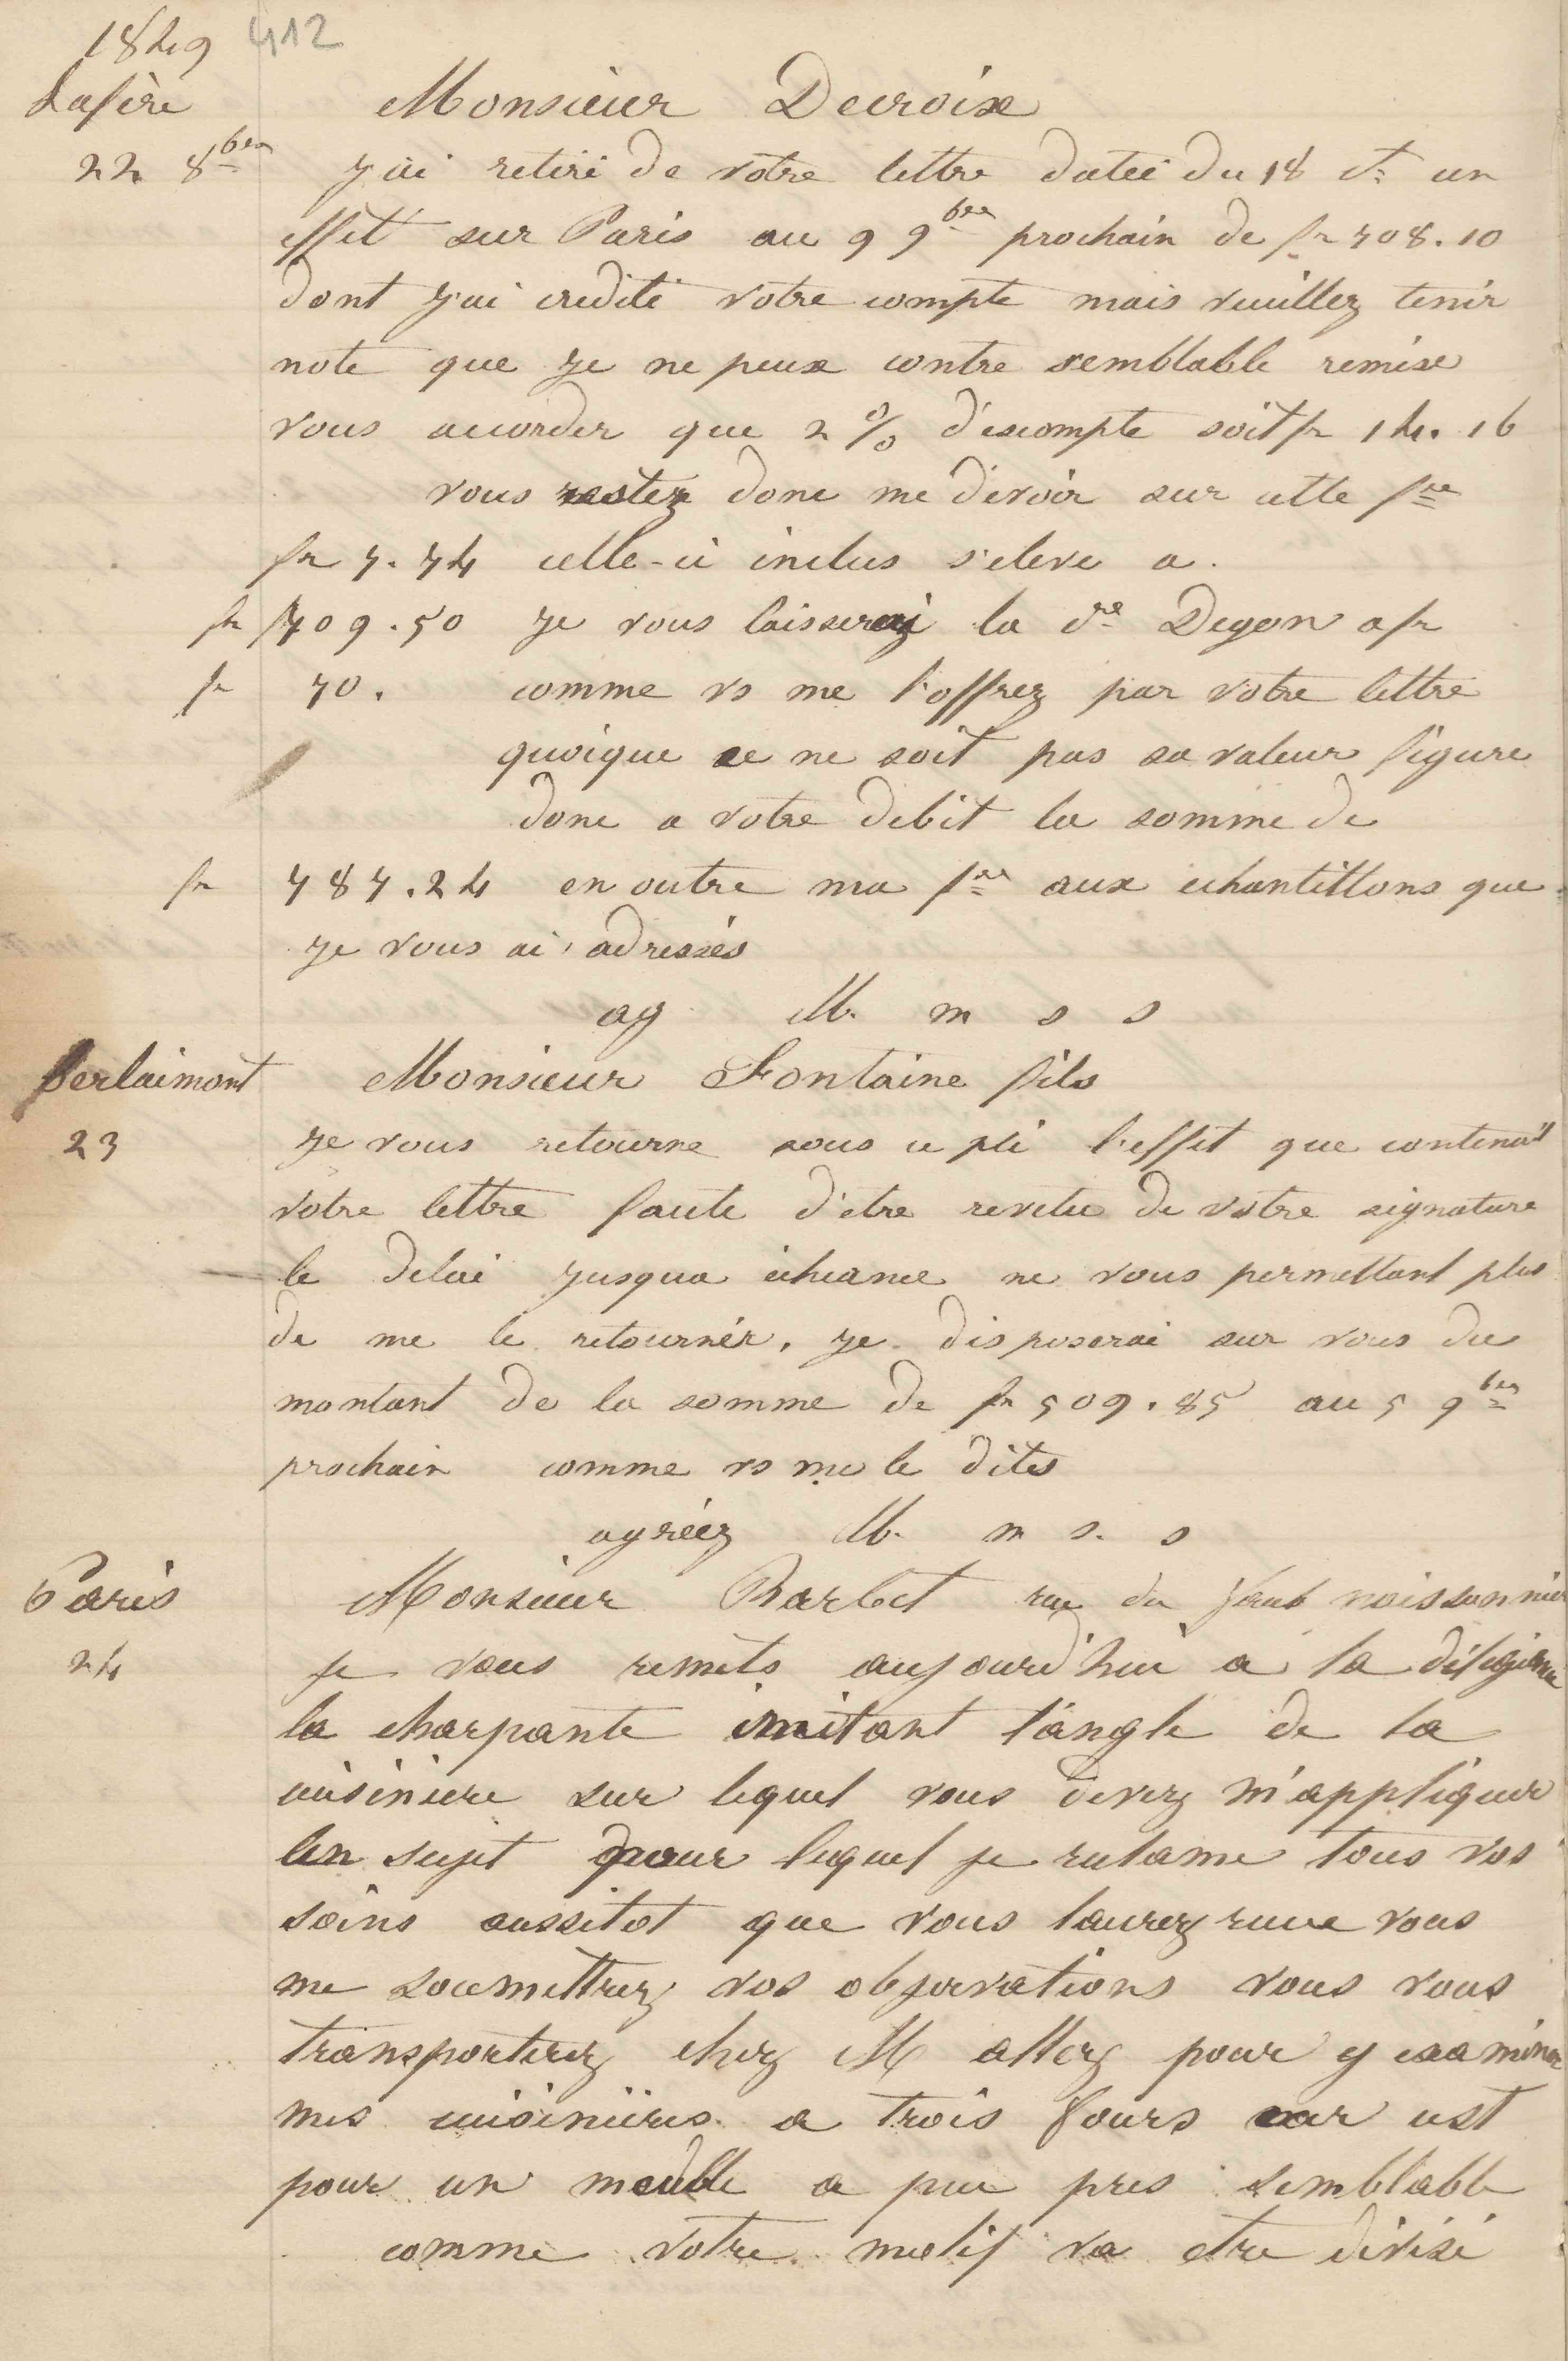 1849 412
Lafère Monsieur Decroix
22 8bre J'ai retiré de votre lettre datée du 18 ct un
effet sur Paris au 9 9bre prochain de fr 708.10
dont j'ai credité votre compte mais veuillez tenir
note que je ne peux contre semblable remise
vous accorder que 2 % d'escompte soit fr 14.16
vous restez donc me devoir sur cette fre
fr 7.74 celle-ci inclus s'eleve a
fr 709.50 je vous laisserai la dre Degon a fr
fr 70. comme vs me l'offrez par votre lettre
quoique ce ne soit pas sa valeur figure
donc a votre debit la somme de
fr 787.24 en outre ma fre aux echantillons que
je vous ai adressés
ag M. m s s
Berlaimont Monsieur Fontaine fils
23 Je vous retourne sous ce pli l'effet que contenait
votre lettre faute d'etre revetu de votre signature
le delai jusqua échéance ne vous permettant plus
de me le retournér, je disposerai sur vous du
montant de la somme de fr 509.85 au 5 9bre
prochain comme vs me le dites
agréez M. m s. s
Paris Monsieur Barbet rue du
24 je vous remets aujourd'hui a la diligence
la charpante imitant l'angle de la
cuisiniere sur lequel vous devez m'appliquer
un sujet pour lequel je reclame tous vos
soins aussitot que vous laurez recue vous
me soumettrez vos observations vous vous
transporterez chez M allez pour y examiner
mes cuisinières a trois fours car cest
pour un meuble a peu pres semblable
comme votre motif va etre divisé